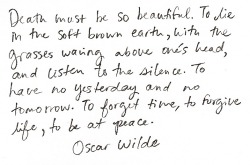 Death must be so beautiful. To lie
in the soft brown earth, with the
grasses waving above one's head,
and listen to the silence. To
have no yesterday and no
tomorrow. To forget time, to forgive
life, to be at peace.
Oscar Wilde